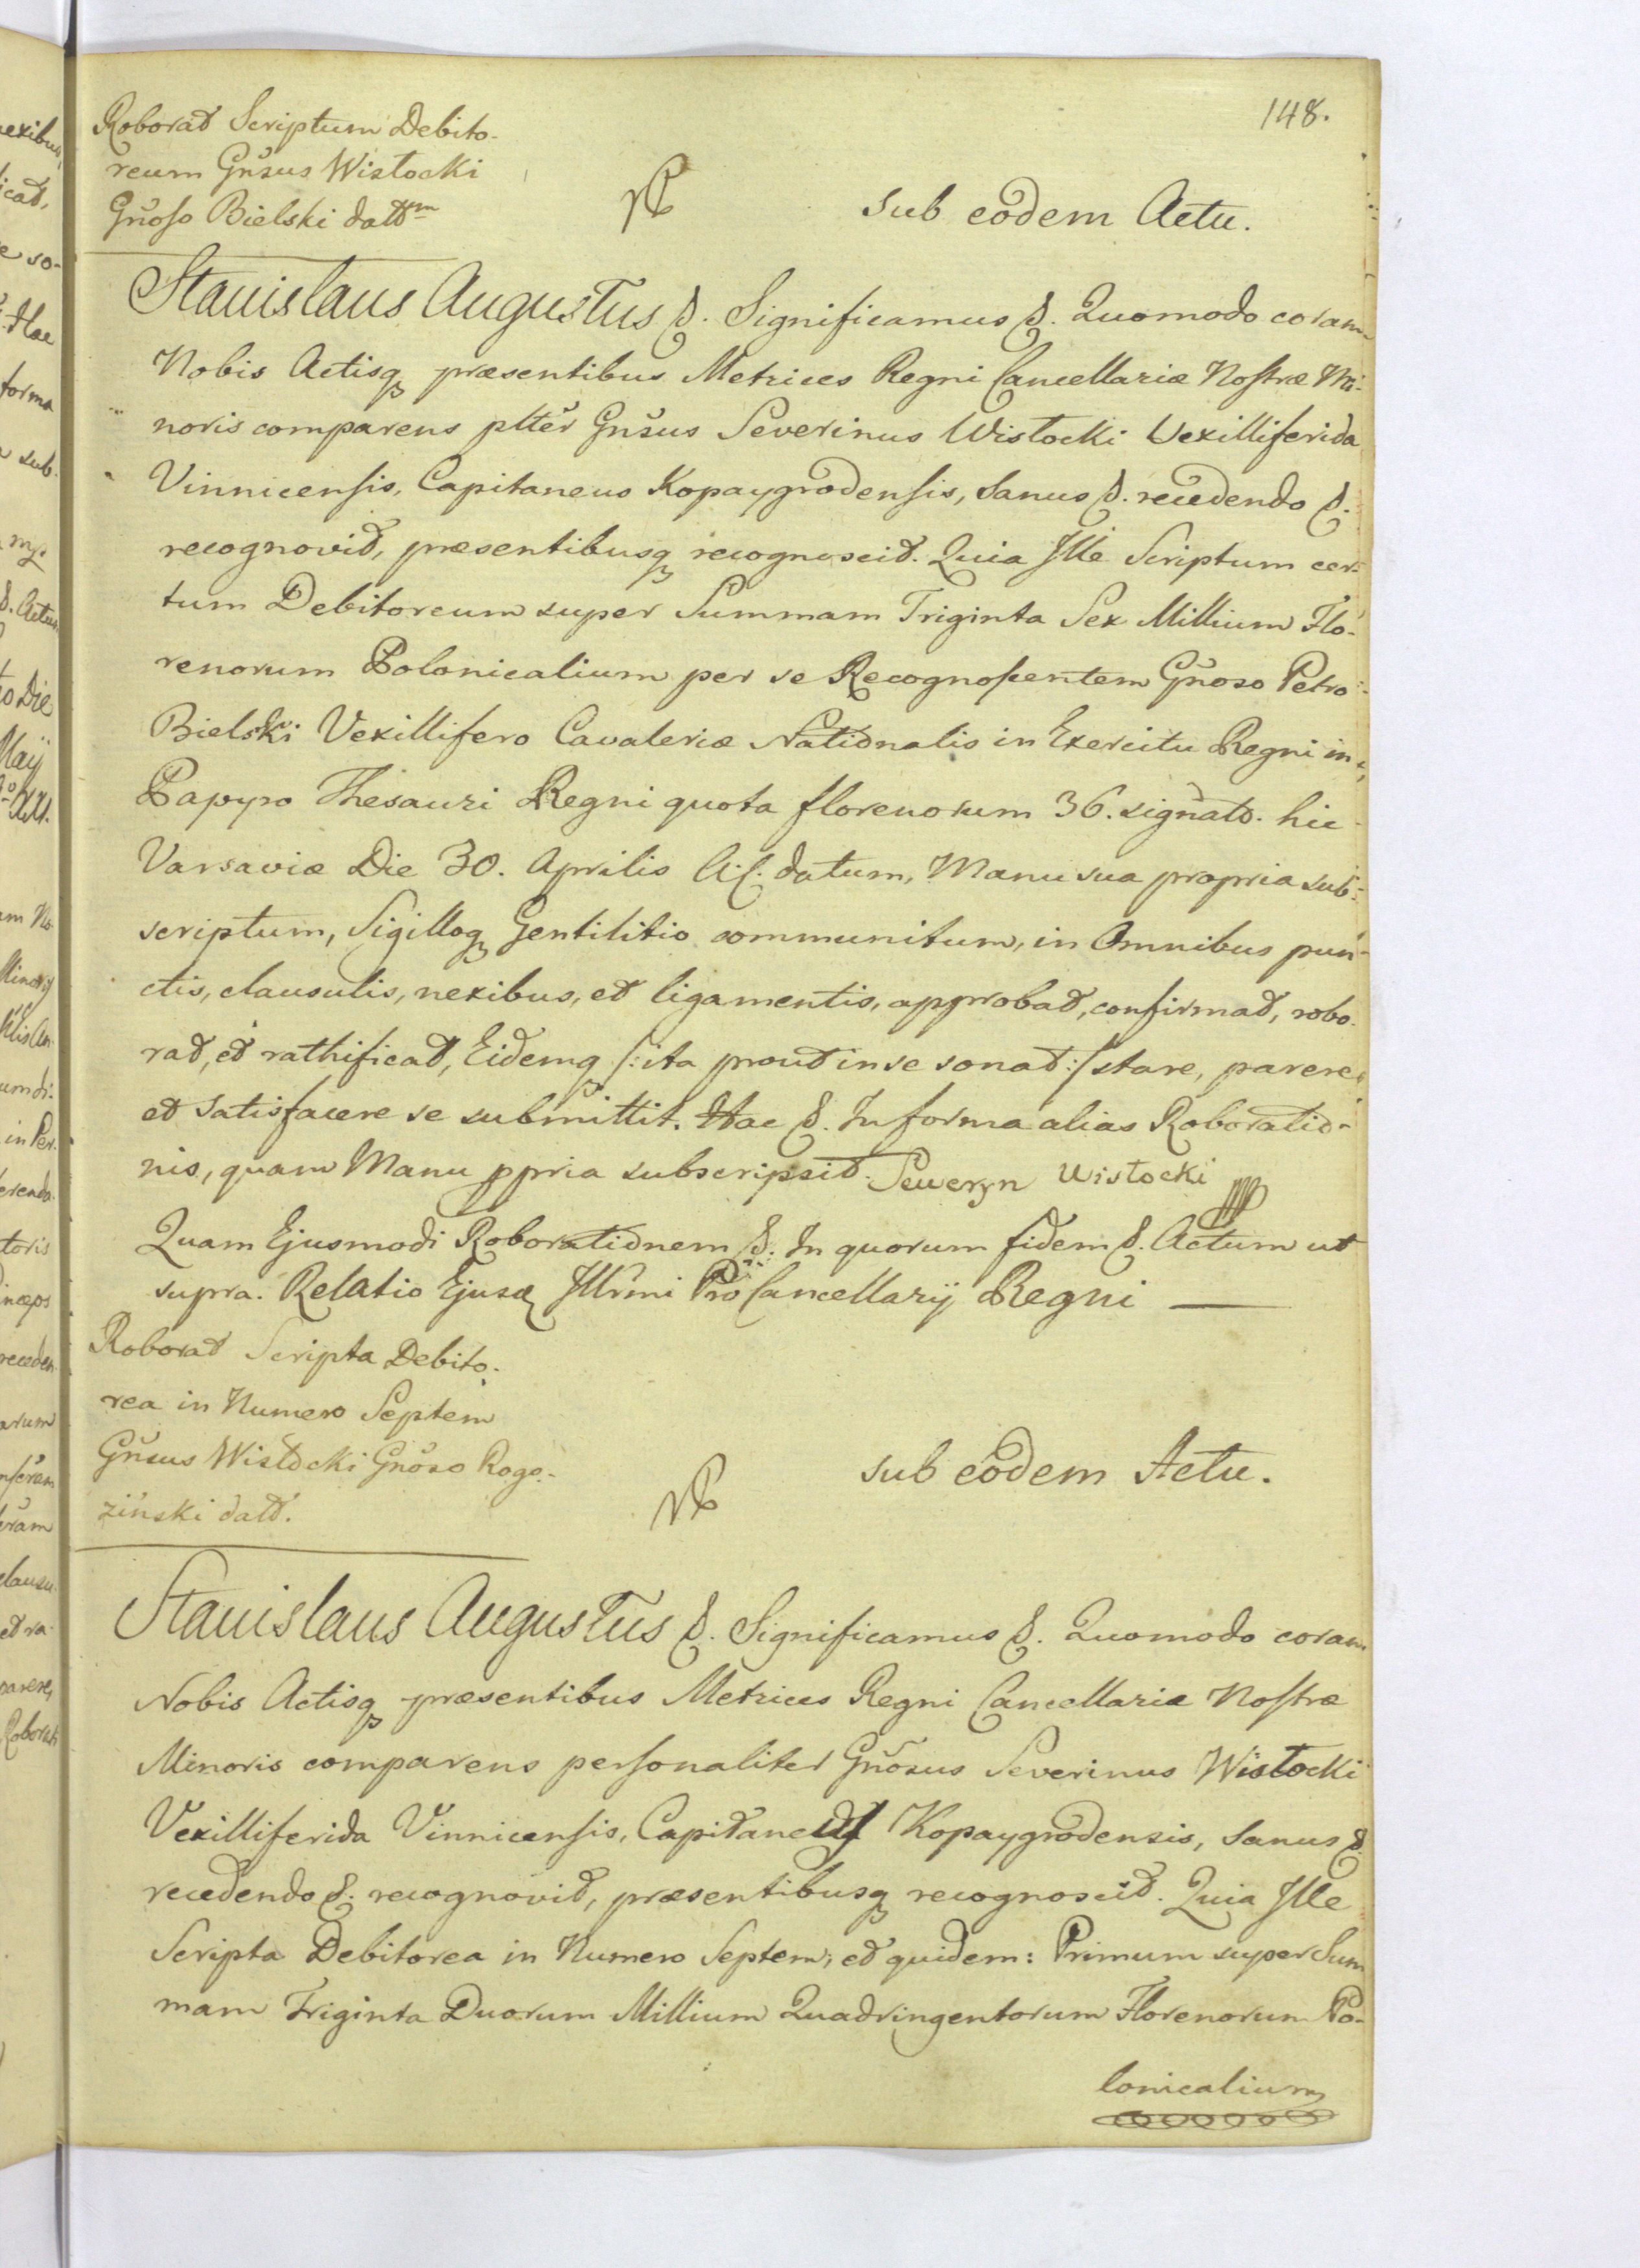 148.
Roborat Scriptum Debito-
reum Gnsus Wisłocki
Gnoso Bielski datt m
sub eodem Actu.
Stanislaus Augustus &. Significamus &. Quomodo coram
Nobis Actisq præsentibus Metrices Regni Cancellariæ Nostræ Mi-
noris comparens pltér Gnsus Severinus Wisłocki Vexilliferida
Vinnicensis, Capitaneus Kopaygrodensis, sanus &. recedendo &.
recognovit, præsentibusq recognoscit. Quia Ille Scriptum cer-
tum Debitoreum super Summam Triginta Sex Millium Flo-
renorum Polonicalium per se Recognoscentem Gnoso Petro
Bielski Vexillifero Cavaleriæ Nationalis in Exercitu Regni in
Papyro Thesauri Regni quota florenorum 36. signato. hic
Varsaviæ Die 30. Aprilis A. C. datum, Manu sua propria sub-
scriptum, Sigilloq Gentilitio communitum, in Omnibus pun-
ctis, clausulis, nexibus, et ligamentis, approbat, confirmat, robo-
rat, et rathificat, Eidemq /: ita prout in se sonat :/ stare, parere
et satisfacere se submittit. Hac &. In forma alias Roboratio-
nis, quam Manu ppria subscripsit. Seweryn Wisłocki
Quam Ejusmodi Roborationem &. In quorum fidem &. Actum ut
supra. Relatio Ejusd Illrmi Pro Cancellarij Regni
Roborat Scripta Debito-
rea in Numero Septem
Gnsus Wisłocki Gnoso Rogo-
ziński datt.
sub eodem Actu.
Stanislaus Augustus &. Significamus &. Quomodo coram
Nobis Actisq præsentibus Metrices Regni Cancellariæ Nostræ
Minoris comparens personaliter Gnosus Severinus Wisłocki
Vexilliferida Vinnicensis, Capitaneus Kopaygrodensis, sanus &
recedendo &. recognovit, præsentibusq recognoscit. Quia Ille
Scripta Debitorea in Numero Septem, et quidem: Primum super Sum
mam Triginta Duorum Millium Quadringentorum Florenorum Po-
lonicalium